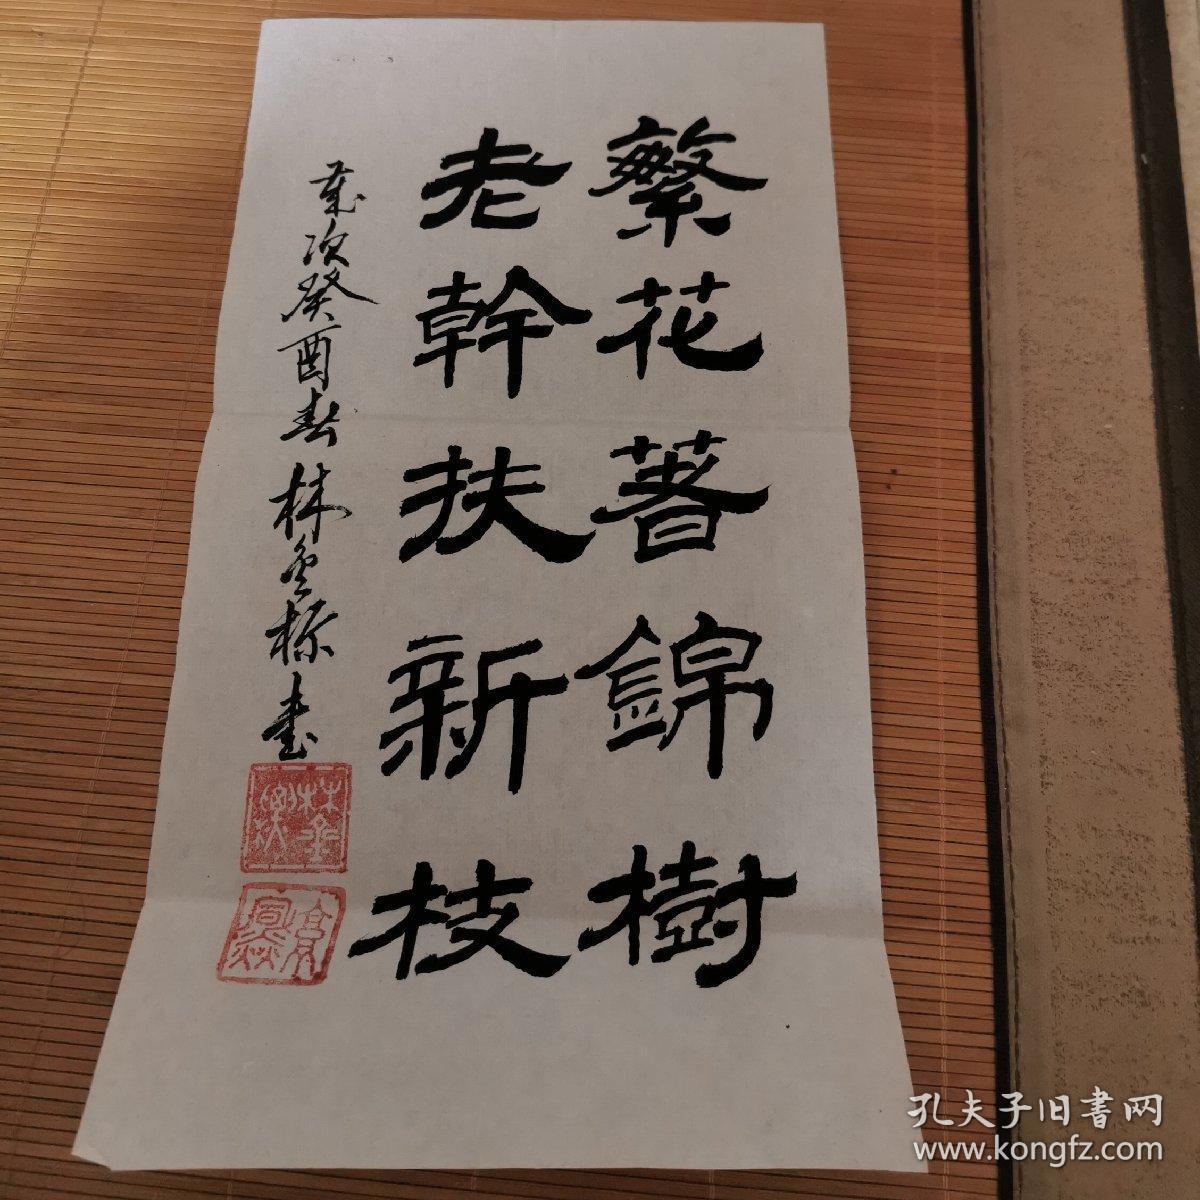 繁花著錦樹
老幹扶新枝
歲次癸酉春林金標書
孔夫子旧書网
www.kongfz.com